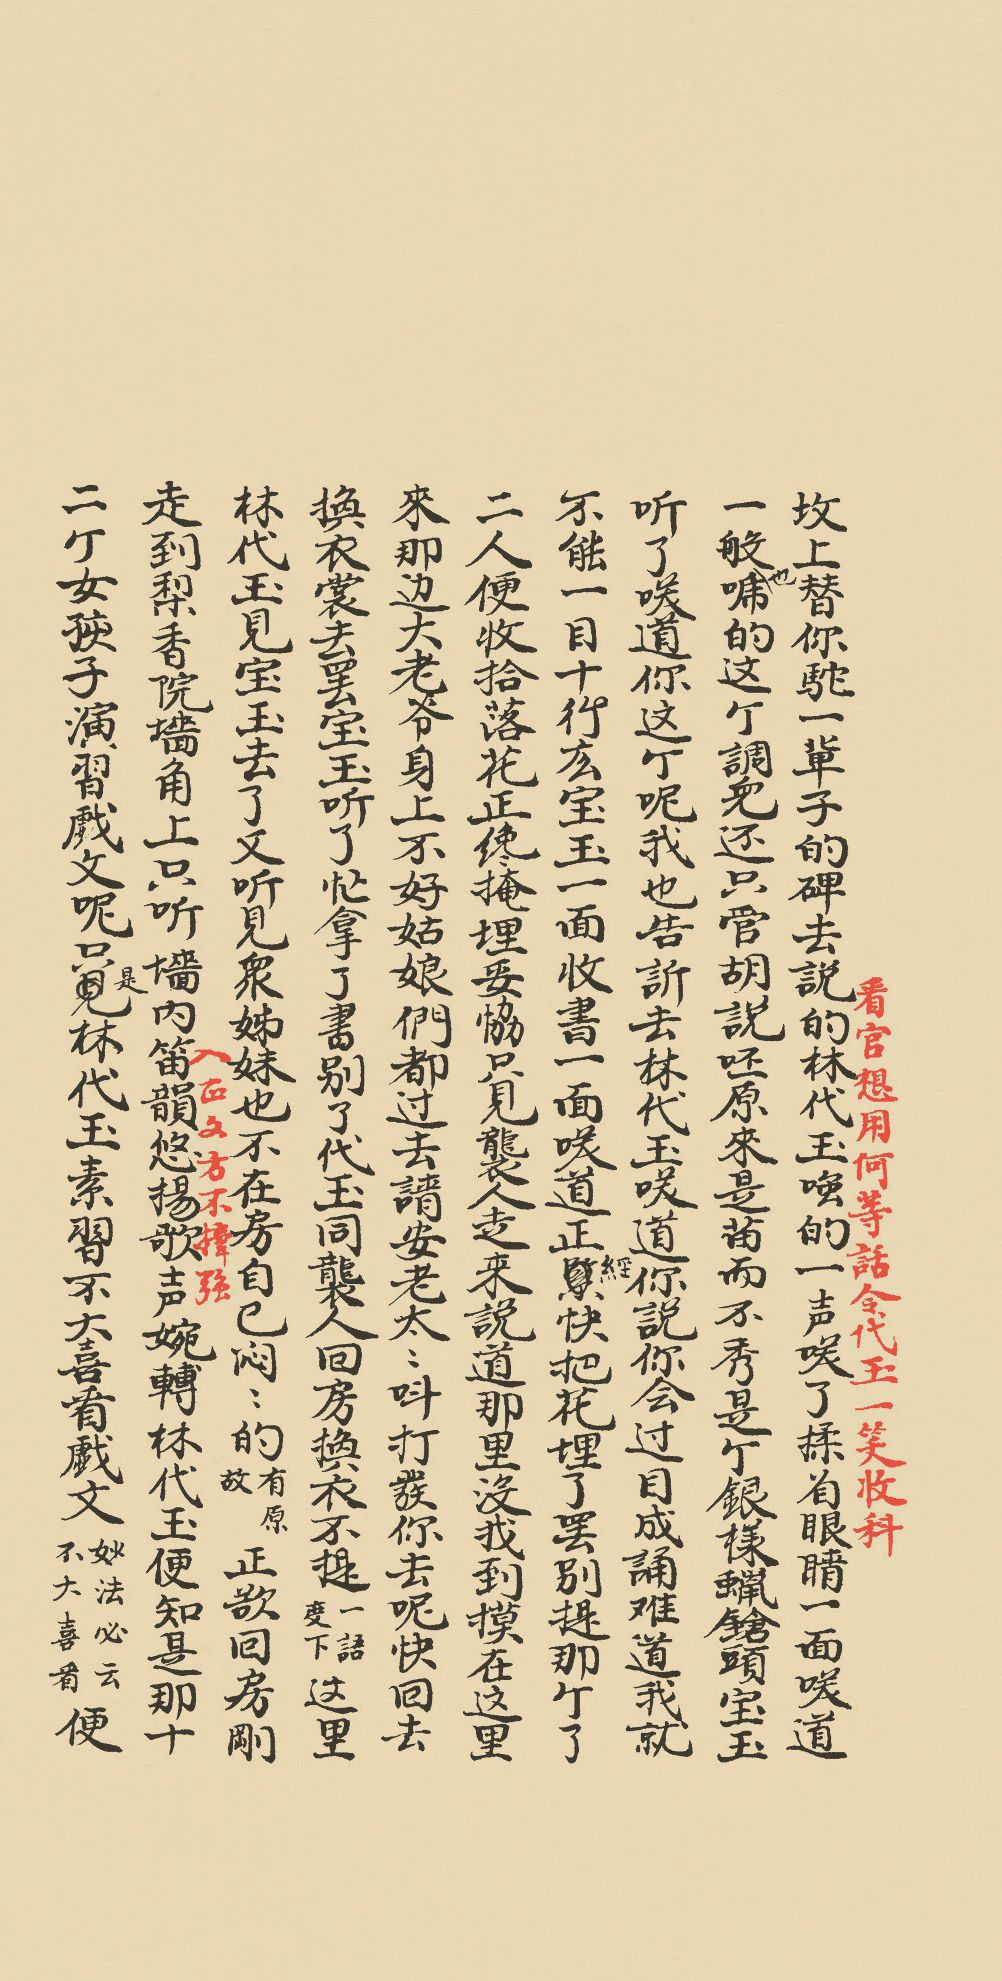 看官想用何等話令代玉一笑收科
坟上替你駝一輩子的碑去説的林代玉嗤的一声咲了揉着眼睛一面咲道
一般也唬的这个調兒还只管胡説呸原來是苗而不秀是个銀様蠟鎗頭宝玉
听了咲道你这个呢我也告訴去林代玉咲道你説你会过目成誦难道我就
不能一目十行么宝玉一面收書一面咲道正緊經快把花埋了罢别提那个了
二人便收拾落花正纔掩埋妥恊只見襲人走来説道那里没找到摸在这里
來那边大老爷身上不好姑娘們都过去請安老太〻呌打發你去呢快回去
換衣裳去罢宝玉听了忙拿了書别了代玉同襲人回房換衣不提一語度下这里
林代玉見宝玉去了又听見衆姊妹也不在房自己闷〻的有原故正欲回房剛
入正文方不撁强
走到梨香院墻角上只听墻内笛韻悠揚歌声婉轉林代玉便知是那十
二个女孩子演習戲文呢只見是林代玉素習不大喜看戲文妙法必云不大喜看便